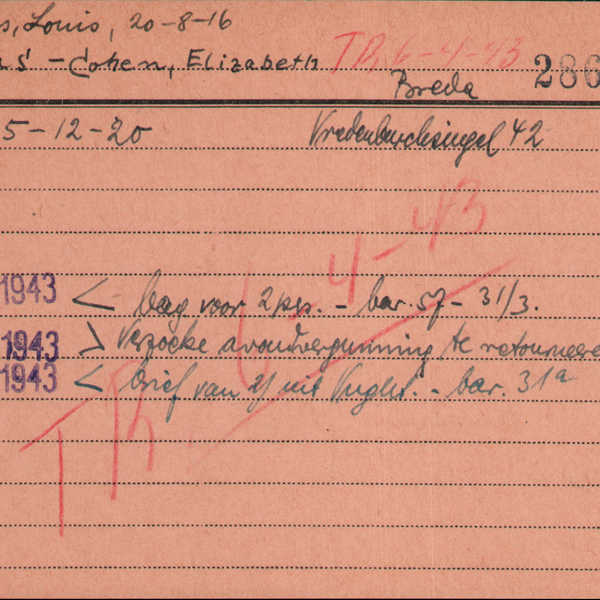 s, Louis, 20-8-16
s - Cohen, Elizabeth TR, 6-4-43 286
Breda
5-12-20 Vredenburchsingel 42
1943 < bag voor 2 psn. - bar. 57 - 31/3.
1943 > Verzoeke avondvergunning te retourneere
1943 < brief van uit Vught. - bar. 31a
TR 6-4-43